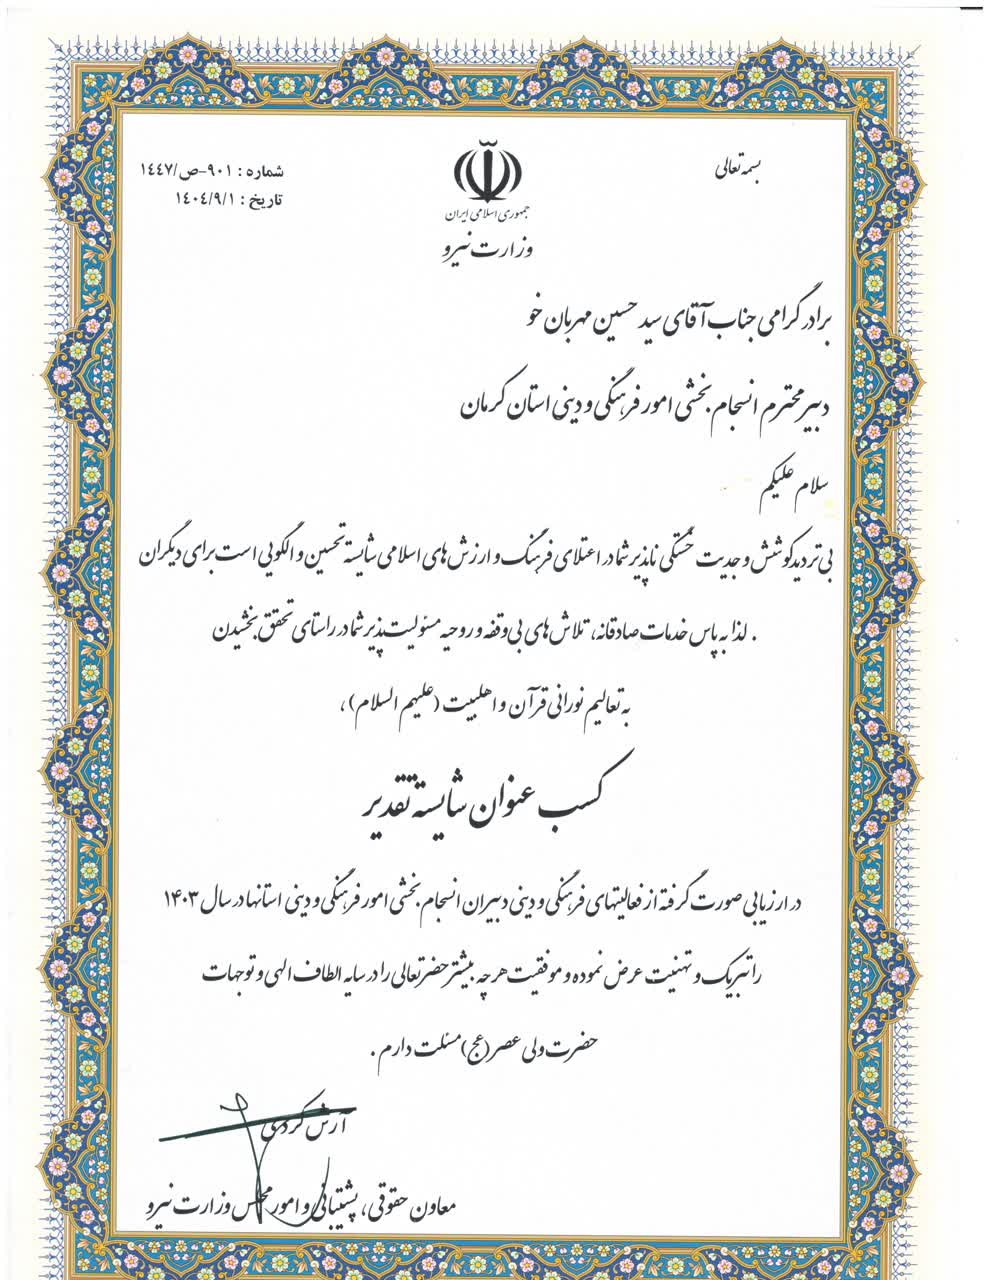 بسمه تعالی
شماره : ۹۰۱-ص/۱٤٤٧
تاریخ : ۱٤۰٤/۹/۱
جمهوری اسلامی ایران
وزارت نیرو
برادر گرامی جناب آقای سید حسین مهربان خو
دبیر محترم انسجام بخشی امور فرهنگی و دینی استان کرمان
سلام علیکم
بی تردید کوشش و جدیت خستگی ناپذیر شما در اعتلای فرهنگ و ارزش های اسلامی شایسته تحسین و الگویی است برای دیگران
. لذا به پاس خدمات صادقانه، تلاش های بی وقفه و روحیه مسئولیت پذیر شما در راستای تحقق بخشیدن
به تعالیم نورانی قرآن و اهلبیت (علیهم السلام)،
کسب عنوان شایسته تقدیر
در ارزیابی صورت گرفته از فعالیتهای فرهنگی و دینی دبیران انسجام بخشی امور فرهنگی و دینی استانها در سال ۱۴۰۳
را تبریک و تهنیت عرض نموده و موفقیت هر چه بیشتر حضرتعالی را در سایه الطاف الهی و توجهات
حضرت ولی عصر (عج) مسئلت دارم .
آرش کردی
معاون حقوقی، پشتیبانی و امور مجلس وزارت نیرو